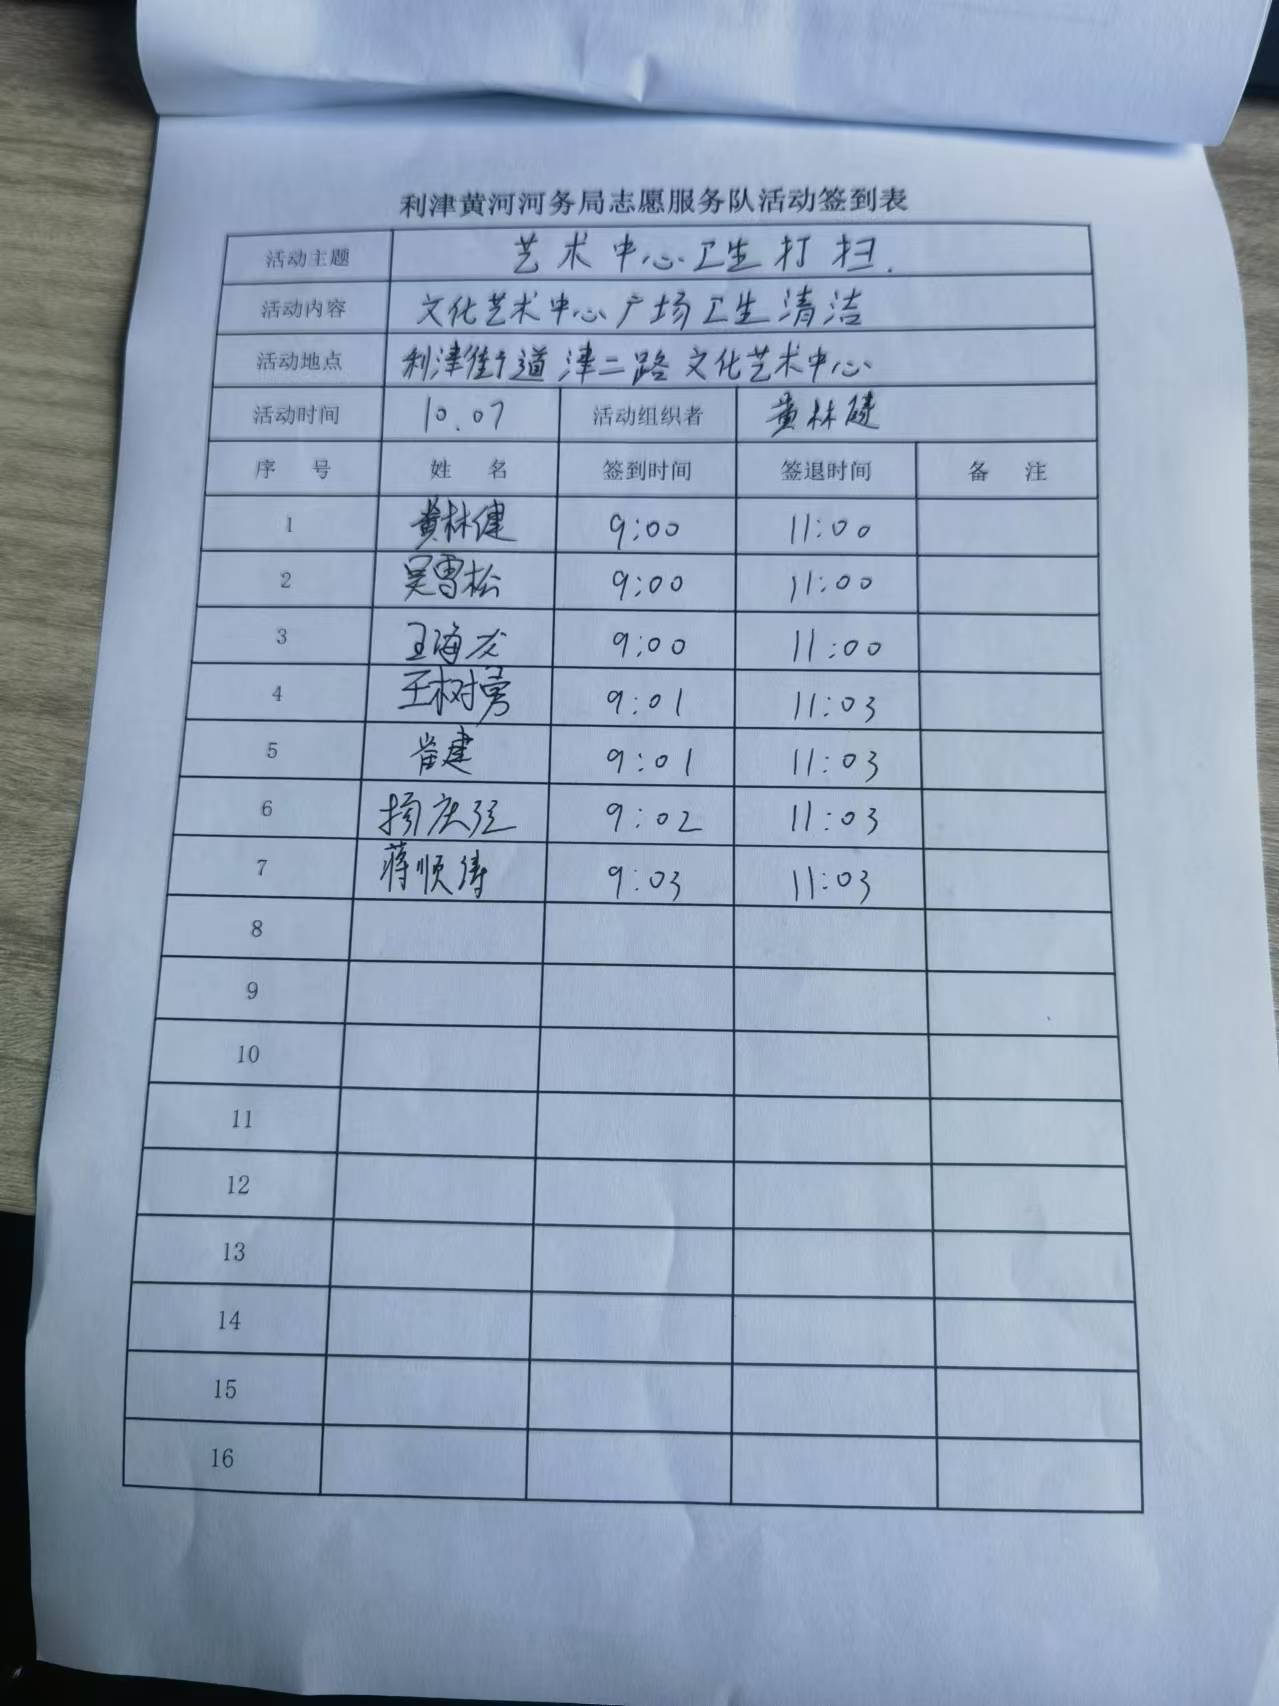 利津黄河河务局志愿服务队活动签到表
活动主题 艺术中心卫生打扫.
活动内容 文化艺术中心广场卫生清洁
活动地点 利津街道津二路文化艺术中心
活动时间 10.07 活动组织者 黄林健
序号 姓名 签到时间 签退时间 备注
1 黄林健 9:00 11:00
2 吴雪松 9:00 11:00
3 王海龙 9:00 11:00
4 王树勇 9:01 11:03
5 崔建 9:01 11:03
6 杨庆 9:02 11:03
7 蒋顺涛 9:03 11:03
8
9
10
11
12
13
14
15
16